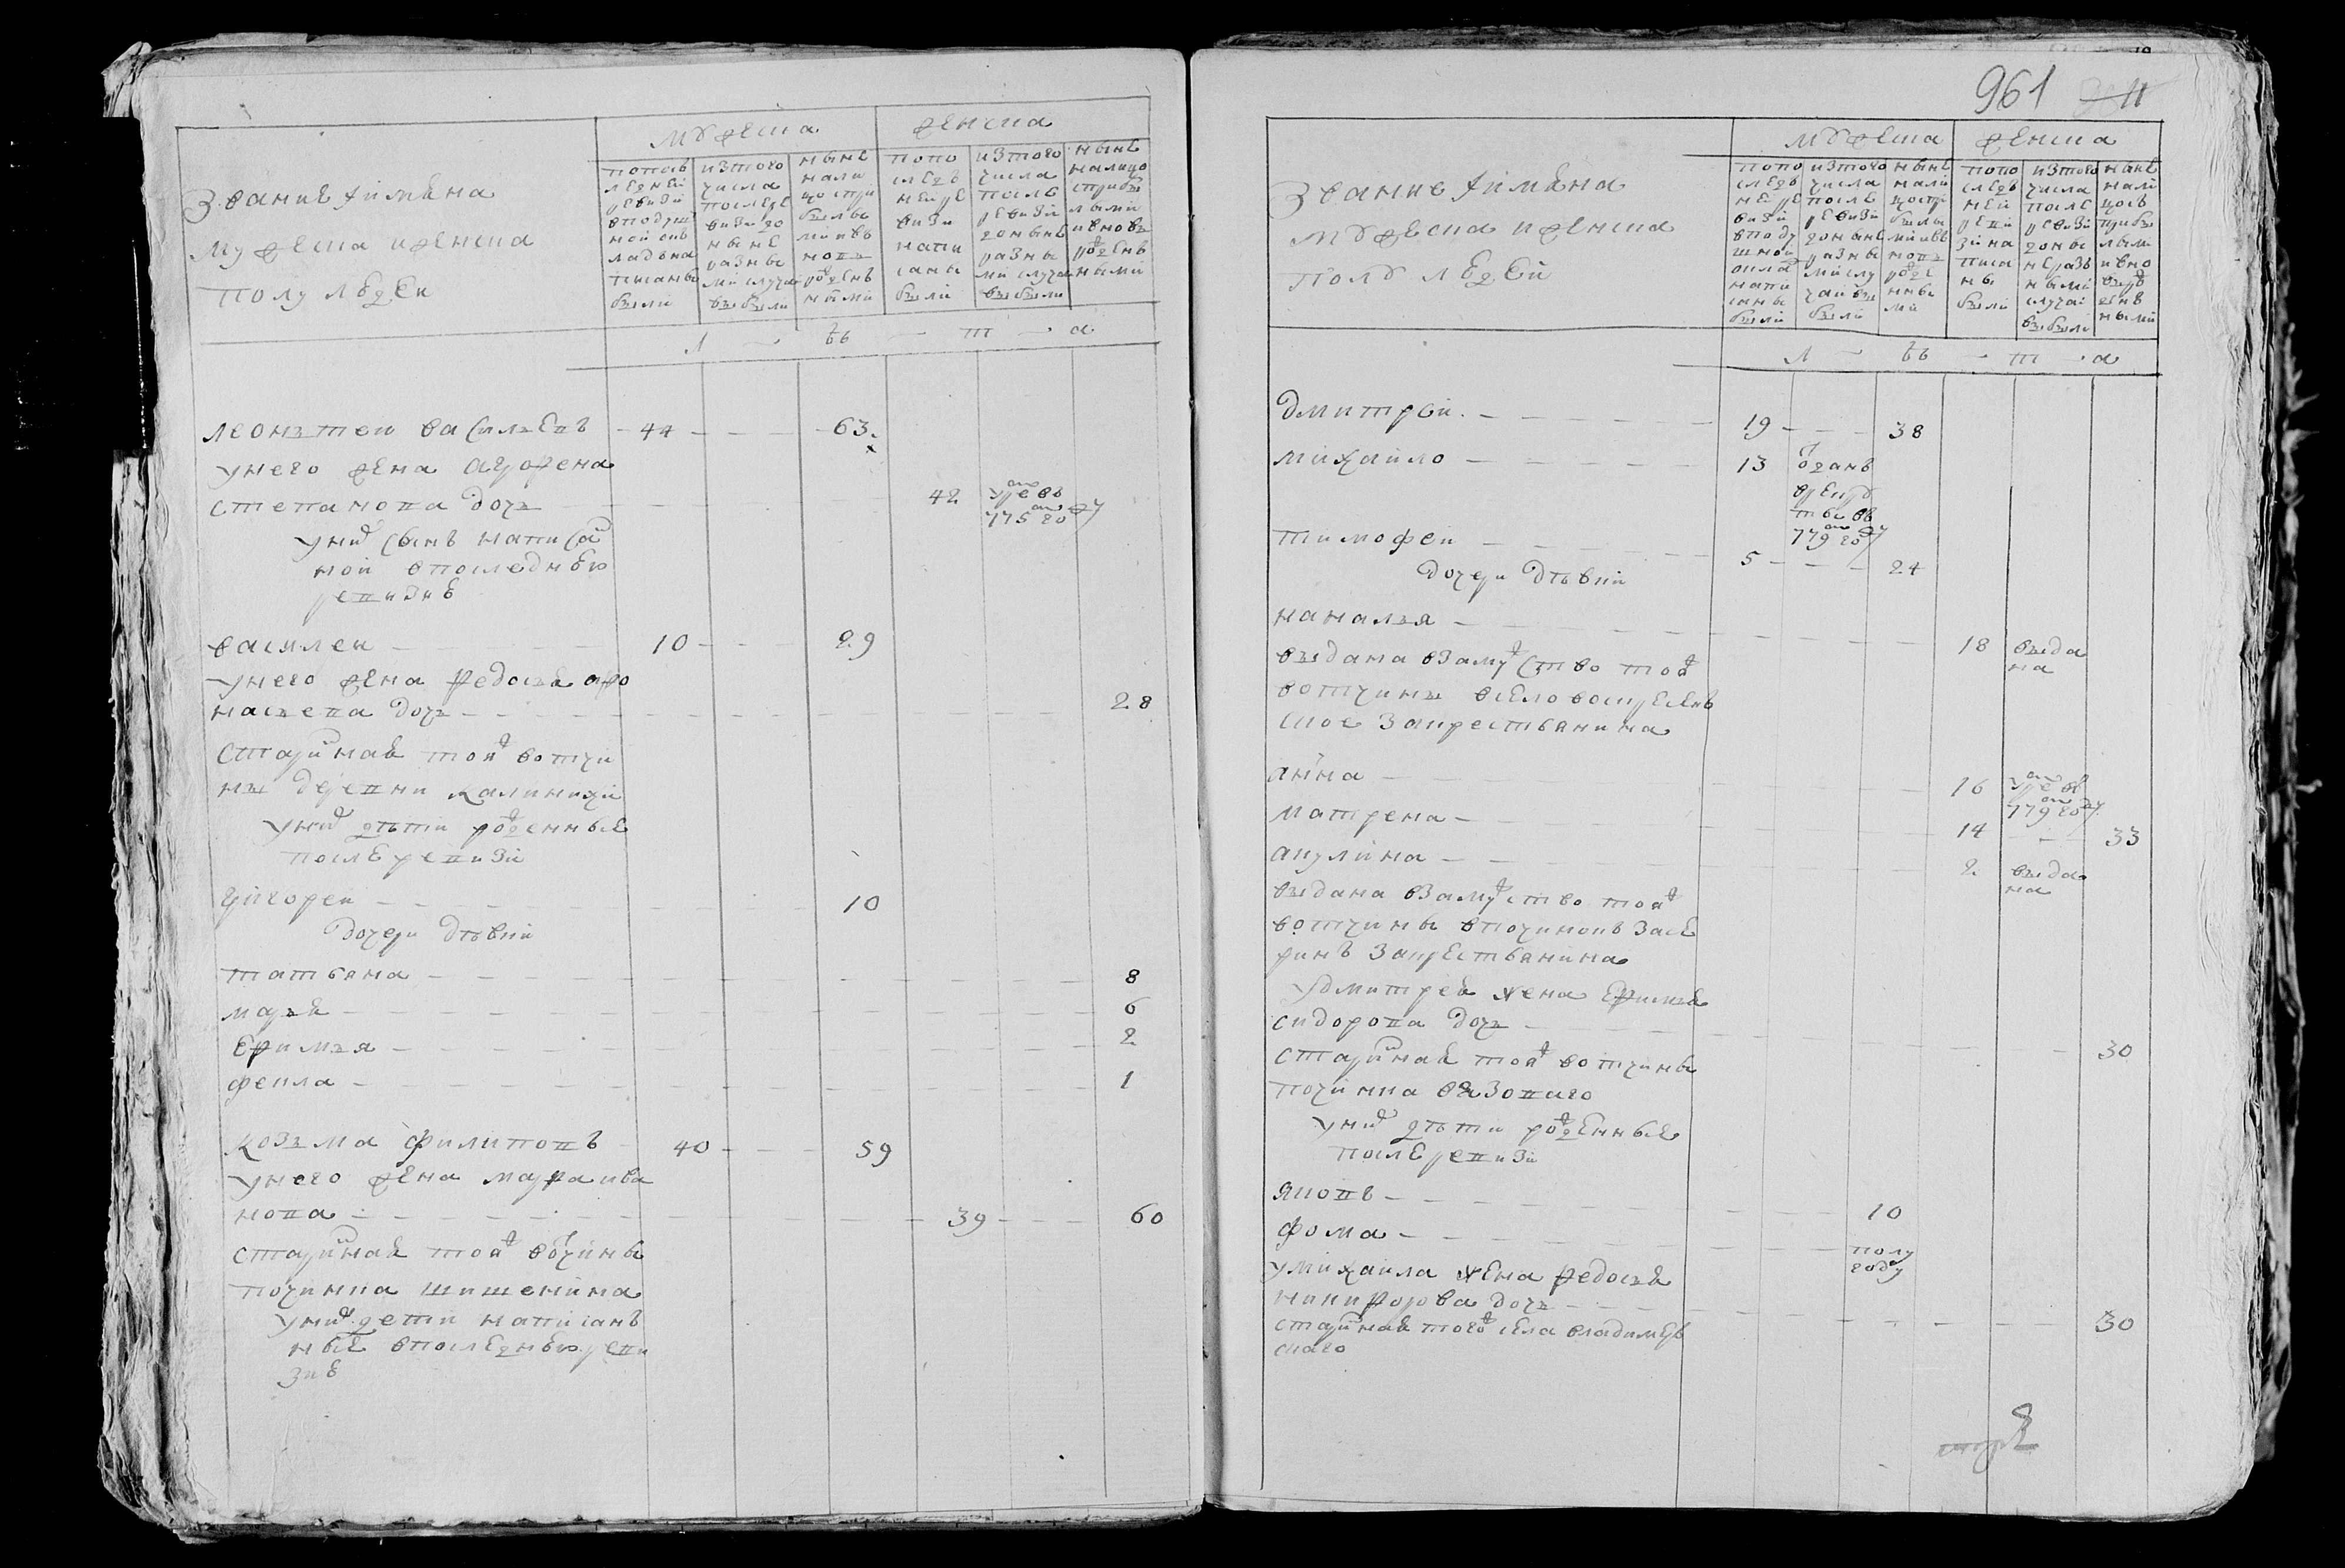 мужеска
женска
Звание и имяна
мужеска и женска
полу людей
по послъ
дней
ревизии
в подуш
ной окъ
лад на
писаны
были
из того
числа
после ре
визии до
ныне
разны
ми случа
выбыли
ныне
нали
цо с при
былы
ми и въ
новь
рожден
ными
по по
следъ
ней ре
визи
напи
саны
были
из того
числа
после
ревизи
до ныне
разны
ми случа
выбыли
ныне
на лицо
с прибы
лыми
и вновь
рожденъ
ными
л ѣ т а
леонътеи васильевъ - 44 - - - 63.
у него жена агрофена
степанова дочь 42 умре въ
775 году
у них сынъ написа
ной в последнею
ревизию
василеи 10 - - 29
у него жена федосья афо
насьева дочь - 28
старинная тояж вотчи
ны деревни калинихи
у них дѣти рожденныя
после ревизии
григореи 10
дочери дѣвки
татьяна 8
марья 6
ефимья 2
фекла 1
козьма филиповъ 40 - - - 59
у него жена марфа ива
нова 39 - - - 60
старинная тояж вотчины
починка шишенина
у них дети написанъ
ные в последнею реви
зию
961 11
мужеска
женска
Звание и имяна
мужеска и женска
полу людей
по по
следъ
ней ре
визии
в поду
шной
оклад
напи
саны
были
из того
числа
после
ревизи
до ныне
разны
ми слу
чаи вы
были
ныне
нали
цо с при
былы
ми и въ
новь
рожде
нны
ми
по по
следъ
ней
реви
зии на
писа
ны
были
из того
числа
после
ревизи
до ны
не разъ
ными
случаи
выбыли
ныне
нали
цо съ
прибы
лыми
и вно
вь рож
денъ
ными
л ѣ т а
дмитреи. 19 - - - 38
михаило 13 отданъ
в рекру
ты въ
779 году
тимофеи 5 - - - 24
дочери дѣвки
наталья 18 выда
на
выдана в замужство тояж
вотчины в село воскресенъ
ское за крестьянина
анна 16 умре въ
779 году
матрена 14 - - - 33
акулина 2 выда
на
выдана в замужство тояж
вотчины в починокъ засе
кинъ за крестьянина
у дмитрея жена ефимья
сидорова дочь 30
старинная тояж вотчины
починка вязоваго
у них дѣти рожденныя
после ревизии
яковъ 10
фома полу
году
у михаила жена федосья
никифорова дочь 30
старинная тогож села владимеръ
скаго